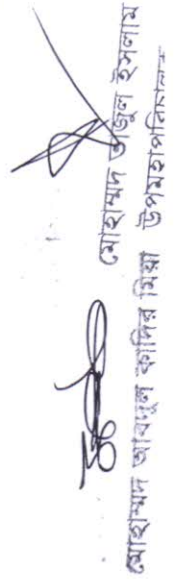 মোহাম্মদ তাজুল ইসলাম
উপমহাপরিচালক
মোহাম্মদ আবদুল কাদির মিয়া